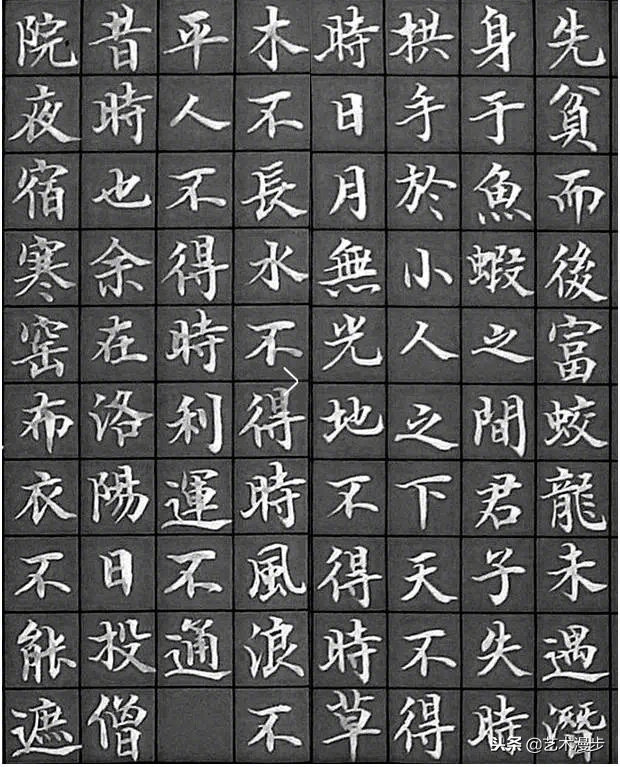 先貧而後富蛟龍未遇潛
身于魚蝦之間君子失時
拱手於小人之下天不得
時日月無光地不得時草
木不長水不得時風浪不
平人不得時利運不通
昔時也余在洛陽日投僧
院夜宿寒窑布衣不能遮
头条 @艺术漫步